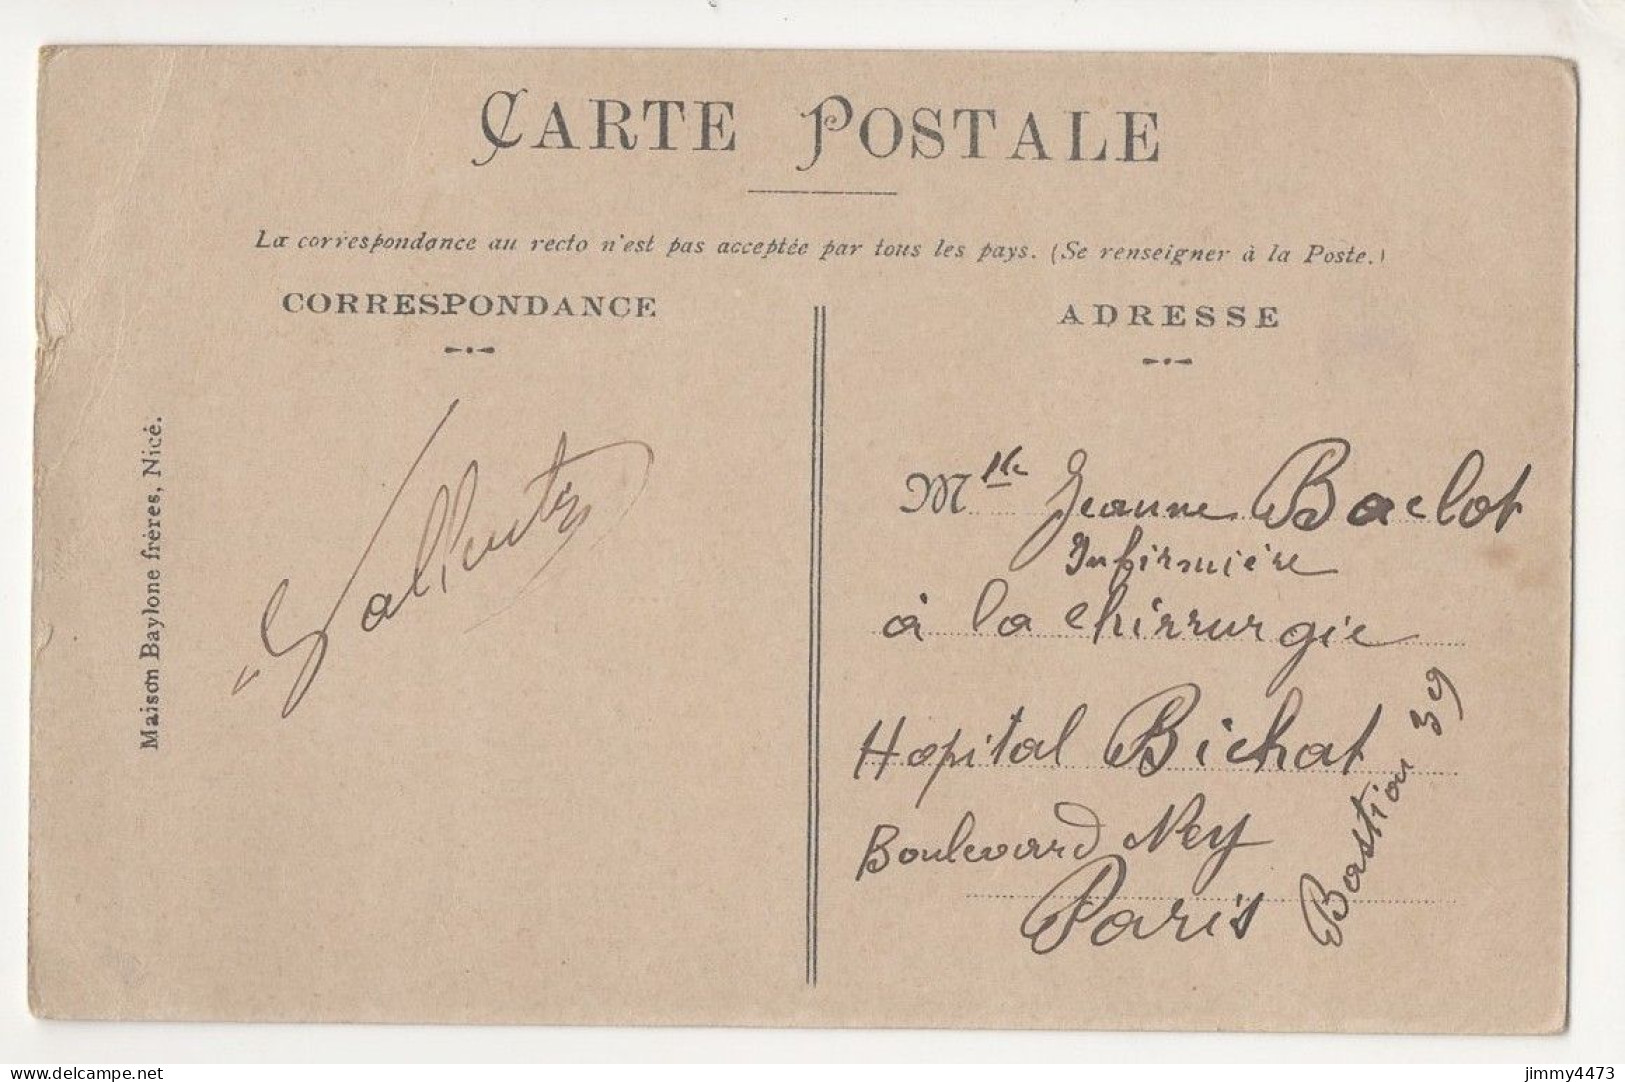 CARTE POSTALE
La correspondance au recto n'est pas acceptée par tous les pays. (Se renseigner à la Poste.)
CORRESPONDANCE
ADRESSE
Maison Baylone frères, Nice.
Mlle Jeanne Baclot
Infirmière
à la chirrurgie
Hopital Bichat
Boulevard Ney
Paris
Bastion 39
www.delcampe.net
jimmy4473